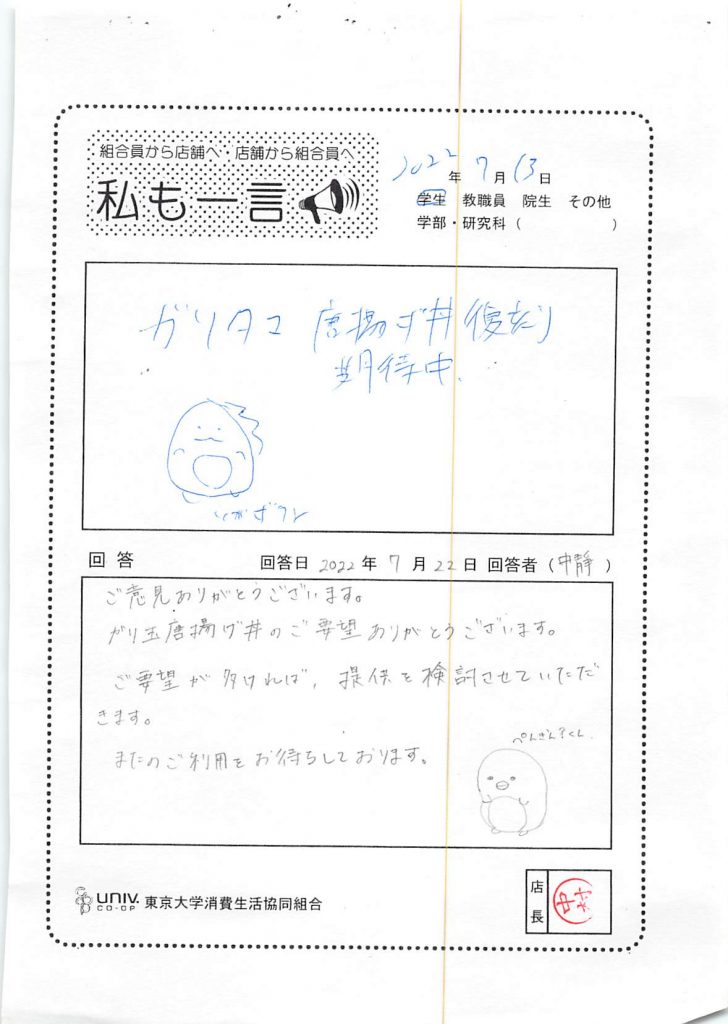 組合員から店舗へ・店舗から組合員へ
私も一言
2022年 7月 13日
学生 教職員 院生 その他
学部・研究科 ( )
ガリタマ 唐揚げ丼 復活
期待中.
回答 回答日 2022年 7月22日 回答者 (中静)
ご意見ありがとうございます。
ガリ玉唐揚げ丼のご要望ありがとうございます。
ご要望が多ければ、提供を検討させていただだ
きます。
またのご利用をお待ちしております。
ぺんぎん?くん.
UNIV. CO-OP 東京大学消費生活協同組合
店長
中村